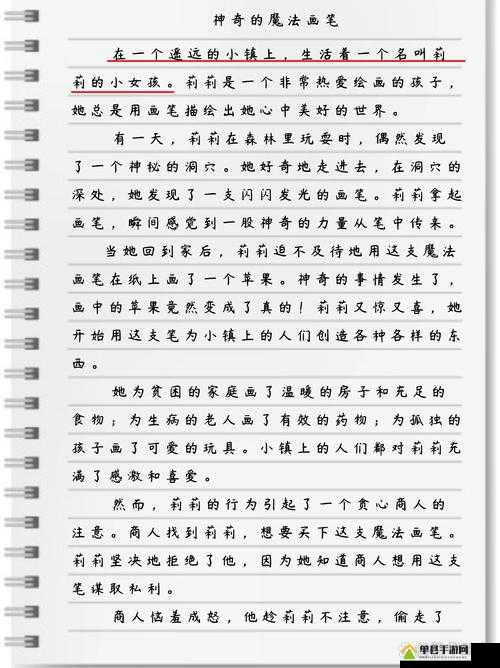 神奇的魔法画笔
在一个遥远的小镇上，生活着一个名叫莉
莉的小女孩。莉莉是一个非常热爱绘画的孩子，
她总是用画笔描绘出她心中美好的世界。
有一天，莉莉在森林里玩耍时，偶然发现
了一个神秘的洞穴。她好奇地走进去，在洞穴的
深处，她发现了一支闪闪发光的画笔。莉莉拿起
画笔，瞬间感觉到一股神奇的力量从笔中传来。
当她回到家后，莉莉迫不及待地用这支魔法
画笔在纸上画了一个苹果。神奇的事情发生了，
画中的苹果竟然变成了真的！莉莉又惊又喜，她
开始用这支笔为小镇上的人们创造各种各样的东
西。
她为贫困的家庭画了温暖的房子和充足的
食物；为生病的老人画了有效的药物；为孤独的
孩子画了可爱的玩具。小镇上的人们都对莉莉充
满了感激和喜爱。
然而，莉莉的行为引起了一个贪心商人的
注意。商人找到莉莉，想要买下这支魔法画笔。
莉莉坚决地拒绝了他，因为她知道商人想用这支
笔谋取私利。
商人恼羞成怒，他趁莉莉不注意，偷走了
单县手游网